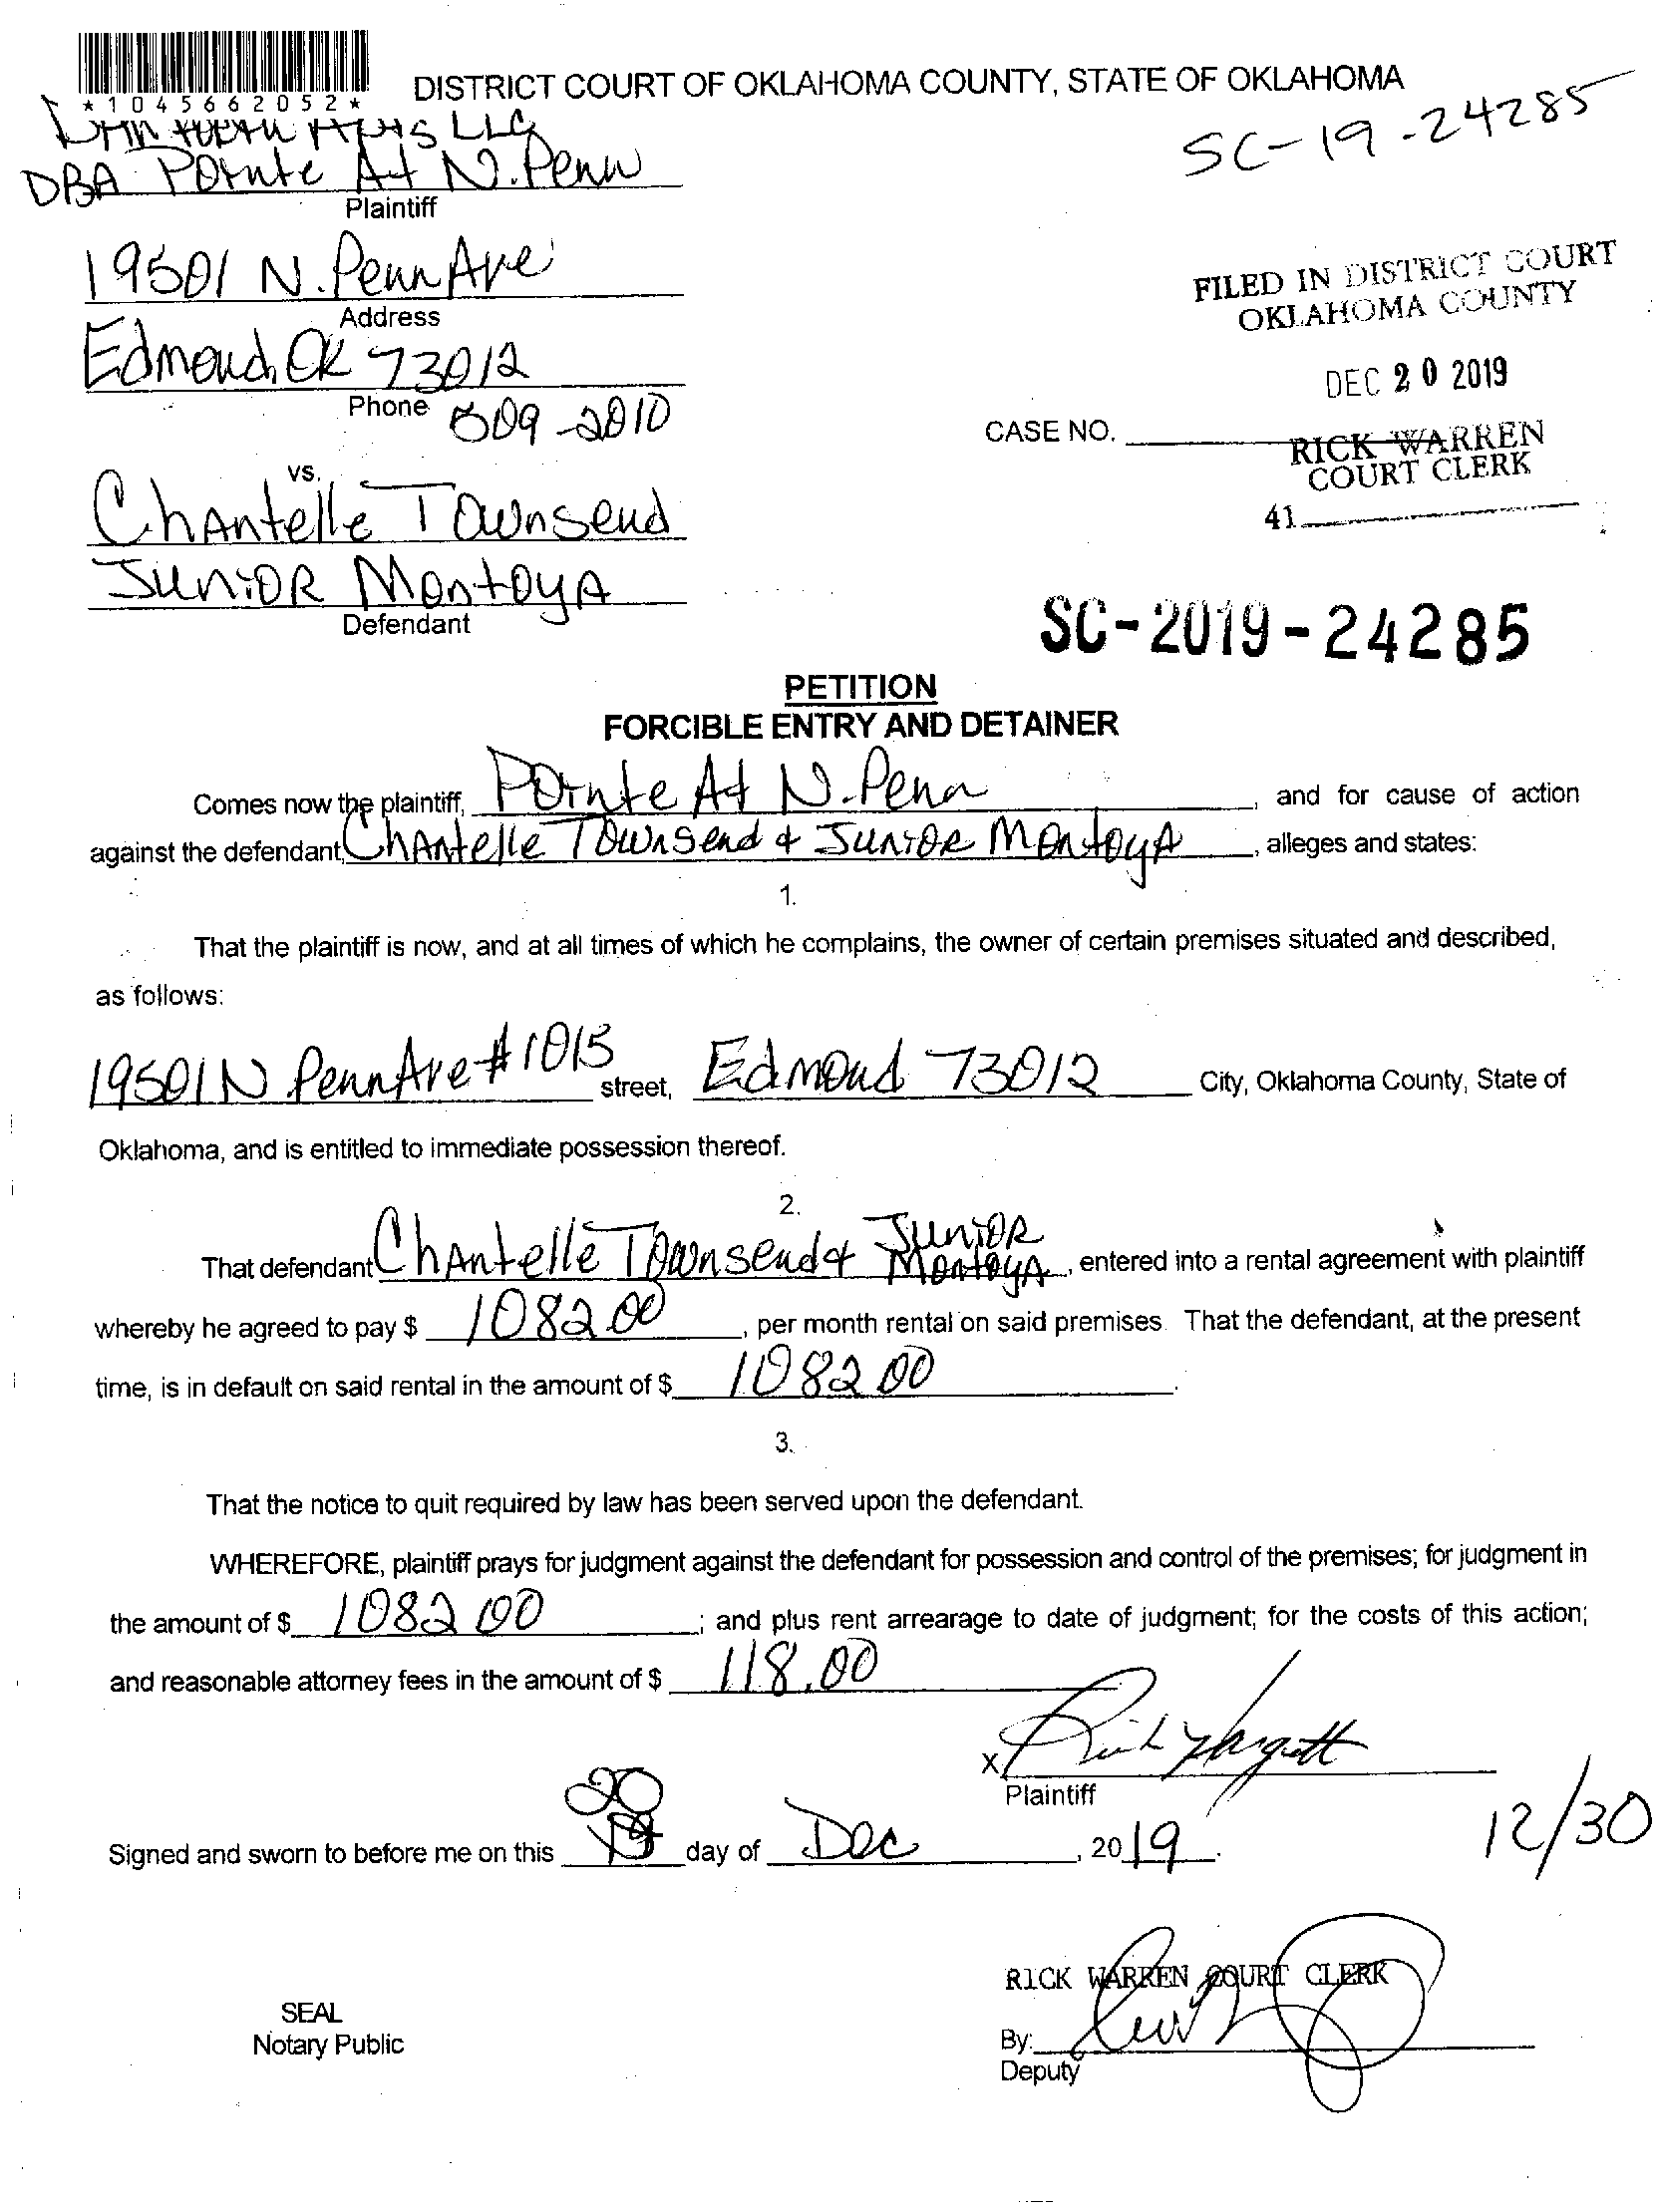 *1045662052*
DISTRICT COURT OF OKLAHOMA COUNTY, STATE OF OKLAHOMA
SC-19-24285
LLC
DBA Pointe At N. Penn
Plaintiff
19501 N. Penn Ave
Address
Edmond, OK 73012
Phone 509-2010
FILED IN DISTRICT COURT
OKLAHOMA COUNTY
DEC 20 2019
CASE NO.
RICK WARREN
COURT CLERK
41
vs.
Chantelle Townsend
Junior Montoya
Defendant
SC-2019-24285
PETITION
FORCIBLE ENTRY AND DETAINER
Comes now the plaintiff, Pointe At N. Penn, and for cause of action
against the defendant, Chantelle Townsend & Junior Montoya, alleges and states:
1.
That the plaintiff is now, and at all times of which he complains, the owner of certain premises situated and described,
as follows:
19501 N Penn Ave #1015 street, Edmond 73012 City, Oklahoma County, State of
Oklahoma, and is entitled to immediate possession thereof.
2.
That defendant Chantelle Townsend & Junior Montoya, entered into a rental agreement with plaintiff
whereby he agreed to pay $ 1082.00, per month rental on said premises. That the defendant, at the present
time, is in default on said rental in the amount of $ 1082 00.
3.
That the notice to quit required by law has been served upon the defendant.
WHEREFORE, plaintiff prays for judgment against the defendant for possession and control of the premises; for judgment in
the amount of $ 1082 00; and plus rent arrearage to date of judgment; for the costs of this action;
and reasonable attorney fees in the amount of $ 118.00
X
Plaintiff
12/30
Signed and sworn to before me on this 20 day of Dec, 2019.
RICK WARREN COURT CLERK
SEAL
Notary Public
By:
Deputy